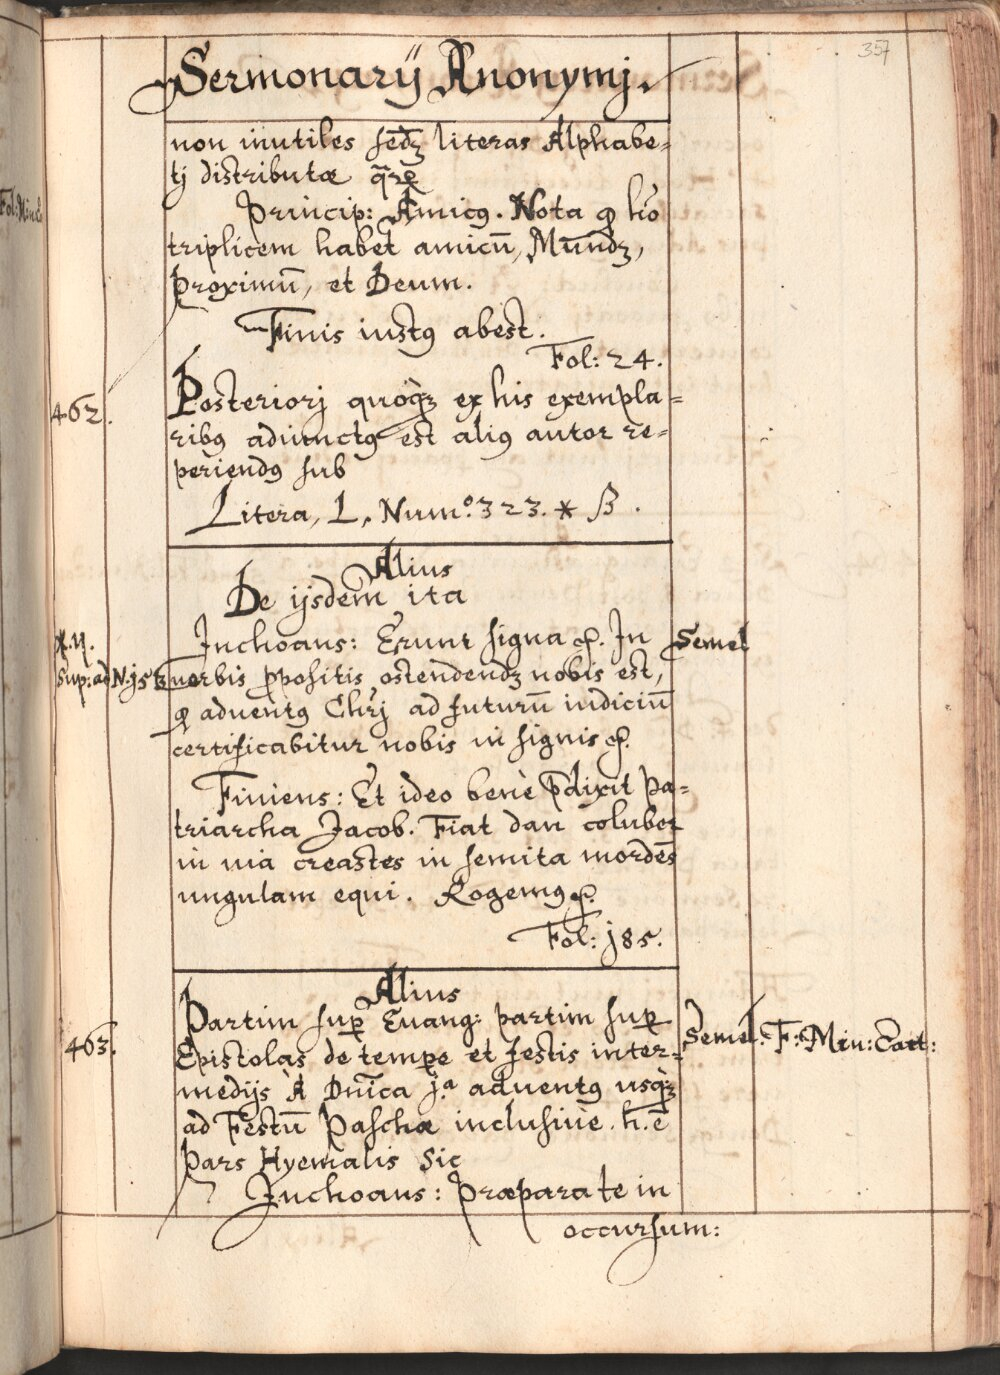 357
Sermonarij Anonymj.
non inutiles scdꝫ literas Alphabe=
tj distributæ q̃rē
Princip: Amicꝰ. Nota ꝙ hō
triplicem habet amicū, Mūndꝫ,
proximū, et Deum.
Finis iustꝰ abest.
Fol: 24.
462.
Posteriorj quoqꝫ ex his exempla=
ribꝰ adiunctꝰ est aliꝰ autor re=
periendꝰ sub
Litera, L, Num.º 323. * β.
Alius
De ijsdem ita
Inchoans: Erunt signa &. In
Semel
sup: ad N. j5
uerbis ꝓpositis ostendendꝫ nobis est,
ꝙ aduentꝰ Chrj ad futurū iudiciū
certificabitur nobis in signis &.
Finiens: Et ideo benè p̄dixit Pa=
triarcha Jacob. Fiat dan coluber
in uia creastes in semita mordēs
ungulam equi. Rogemꝰ &.
Fol: j85.
Alius
463.
Partim sup̱ Euang: partim sup̱
Semel. F: Min: Cart:
Epistolas de tempe et festis inter=
medijs A Dn̄ica j.ª aduentꝰ usqꝫ
ad Festū Paschæ inclusiuè. h. ē
Pars Hyemalis Sic
Inchoans: Præparate in
occursum: